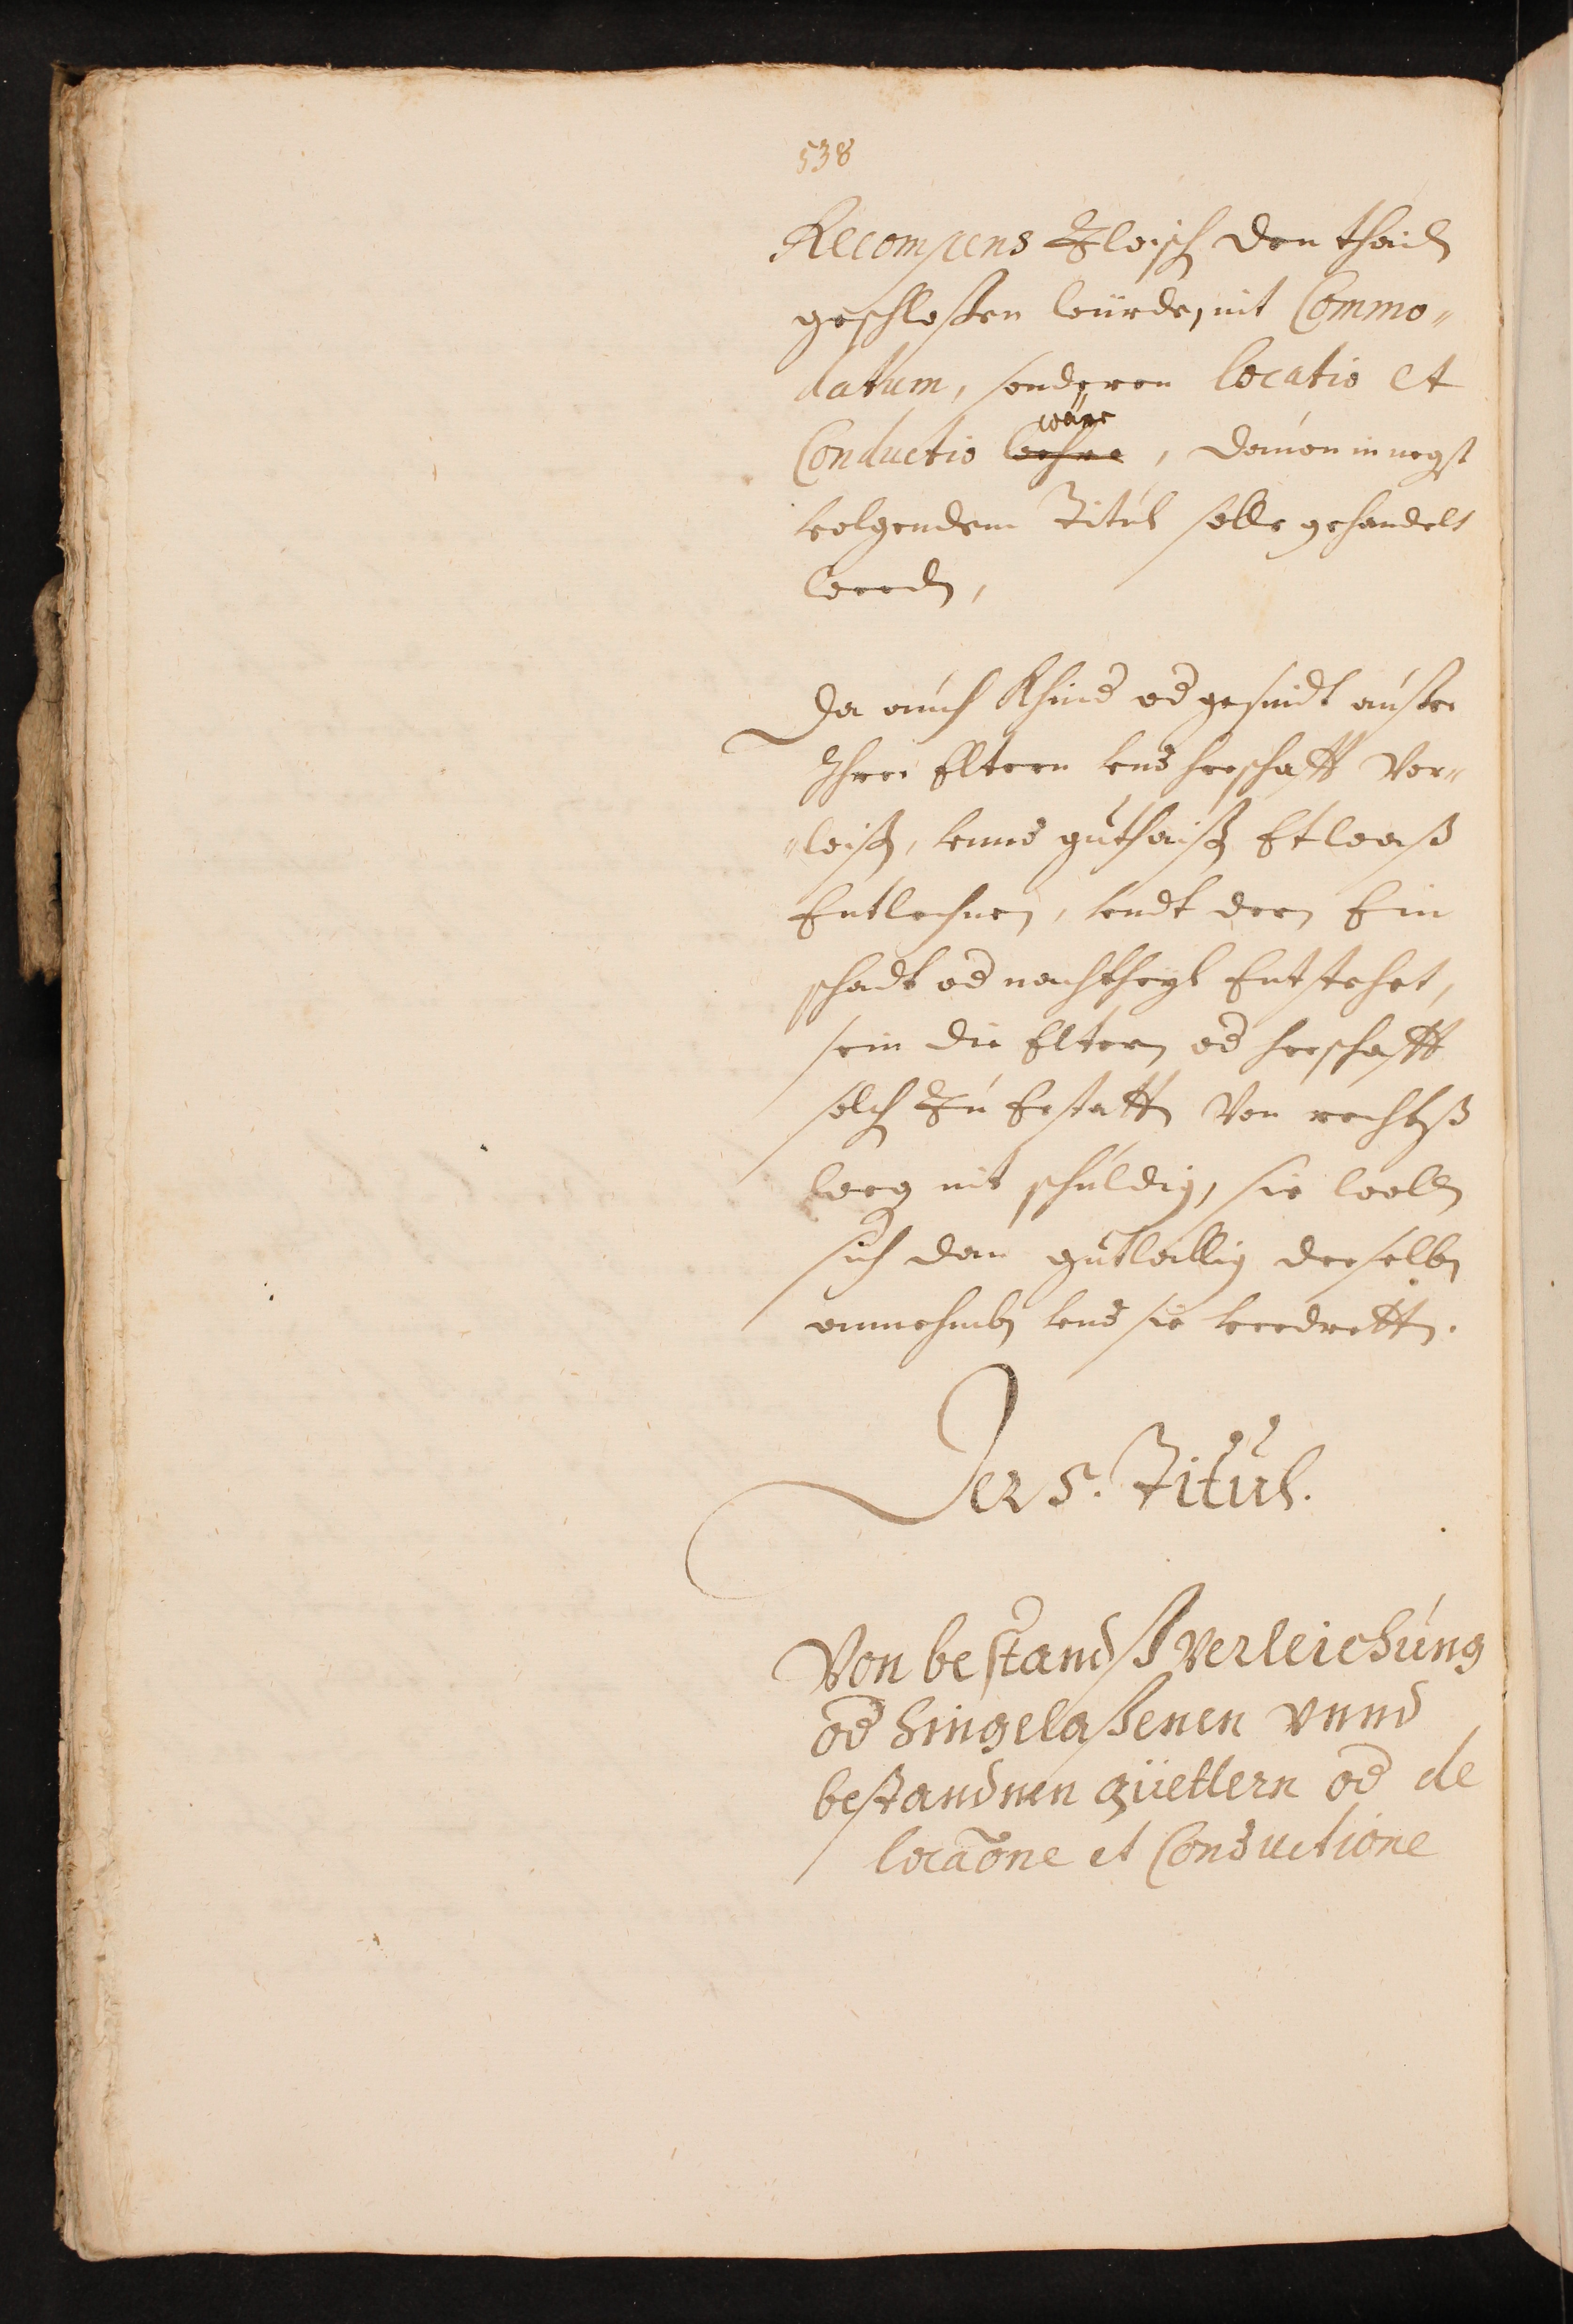 538
Recompens Zwisch den thailn
geschlossen würde, nit Commo„
datum, sonderen locatio et
Conductio wehre wäre, dauon in negst
volgendem Titul solle gehandelt
werdn,
Da auch Khind od gesindt ausser
Ihrer Eltern vnd herschafft Vor„
„wissn, vnnd guthaissn Etwass
Entlechnen, vndt dern Ein
schadt od nachtheyl Entstehet,
sein die Eltern od herschafft
solch Zu Erstattn Von rechtss
weeg nit schuldig, sie wolln
sich dan guetwillig derselbn
annehmbn vnd sie verdrettn.
Der 5. Titul.
Von bestandss Verleichung
od hingelassenen vnnd
bestandnen güettern od de
locaõne et Conductione